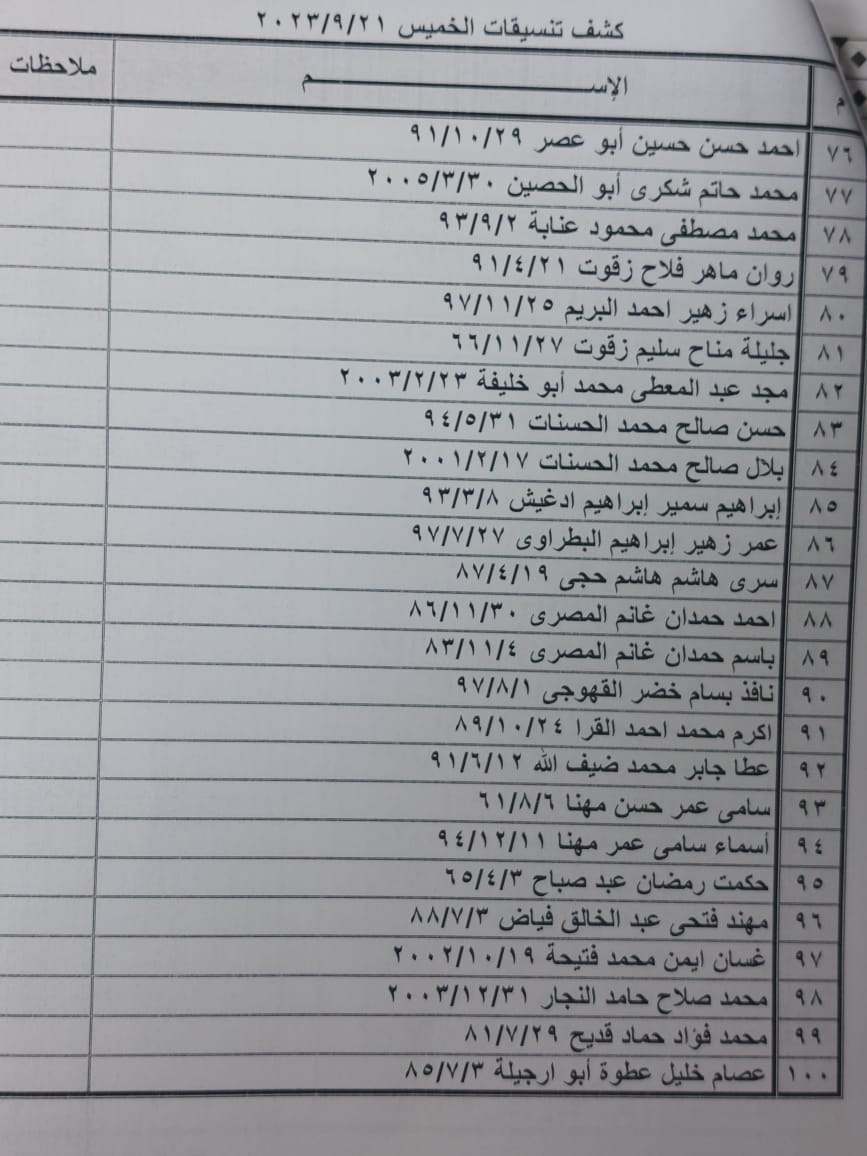 كشف تنسيقات الخميس ٢٠٢٣/٩/٢١
م الإســـــــــم ملاحظات
٧٦ احمد حسن حسين أبو عصر ٩١/١٠/٢٩
٧٧ محمد حاتم شكرى أبو الحصين ٢٠٠٥/٣/٣٠
٧٨ محمد مصطفى محمود عنابة ٩٣/٩/٢
٧٩ روان ماهر فلاح زقوت ٩١/٤/٢١
٨٠ اسراء زهير احمد البريم ٩٧/١١/٢٥
٨١ جليلة مناح سليم زقوت ٦٦/١١/٢٧
٨٢ مجد عبد المعطى محمد أبو خليفة ٢٠٠٣/٢/٢٣
٨٣ حسن صالح محمد الحسنات ٩٤/٥/٣١
٨٤ بلال صالح محمد الحسنات ٢٠٠١/٢/١٧
٨٥ إبراهيم سمير إبراهيم ادغيش ٩٣/٣/٨
٨٦ عمر زهير إبراهيم البطراوى ٩٧/٧/٢٧
٨٧ سرى هاشم هاشم حجى ٨٧/٤/١٩
٨٨ احمد حمدان غانم المصرى ٨٦/١١/٣٠
٨٩ باسم حمدان غانم المصرى ٨٣/١١/٤
٩٠ نافذ بسام خضر القهوجى ٩٧/٨/١
٩١ اكرم محمد احمد القرا ٨٩/١٠/٢٤
٩٢ عطا جابر محمد ضيف الله ٩١/٦/١٢
٩٣ سامى عمر حسن مهنا ٦١/٨/٦
٩٤ أسماء سامى عمر مهنا ٩٤/١٢/١١
٩٥ حكمت رمضان عبد صباح ٦٥/٤/٣
٩٦ مهند فتحى عبد الخالق فياض ٨٨/٧/٣
٩٧ غسان ايمن محمد فتيحة ٢٠٠٢/١٠/١٩
٩٨ محمد صلاح حامد النجار ٢٠٠٣/١٢/٣١
٩٩ محمد فؤاد حماد قديح ٨١/٧/٢٩
١٠٠ عصام خليل عطوة أبو ارجيلة ٨٥/٧/٣